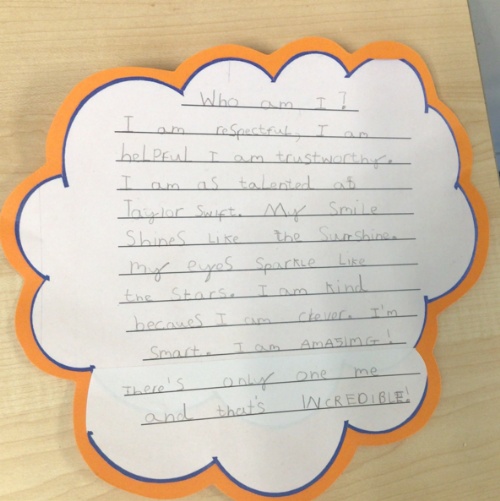 Who am I?
I am respectful, I am
helpful I am trustworthy.
I am as talented as
Taylor Swift. My smile
Shines like the Sunshine.
my eyes sparkle like
the stars. I am kind
becaues I am clever. I'm
smart. I am AMASING!
There's only one me
and that's INCREDIBLE!